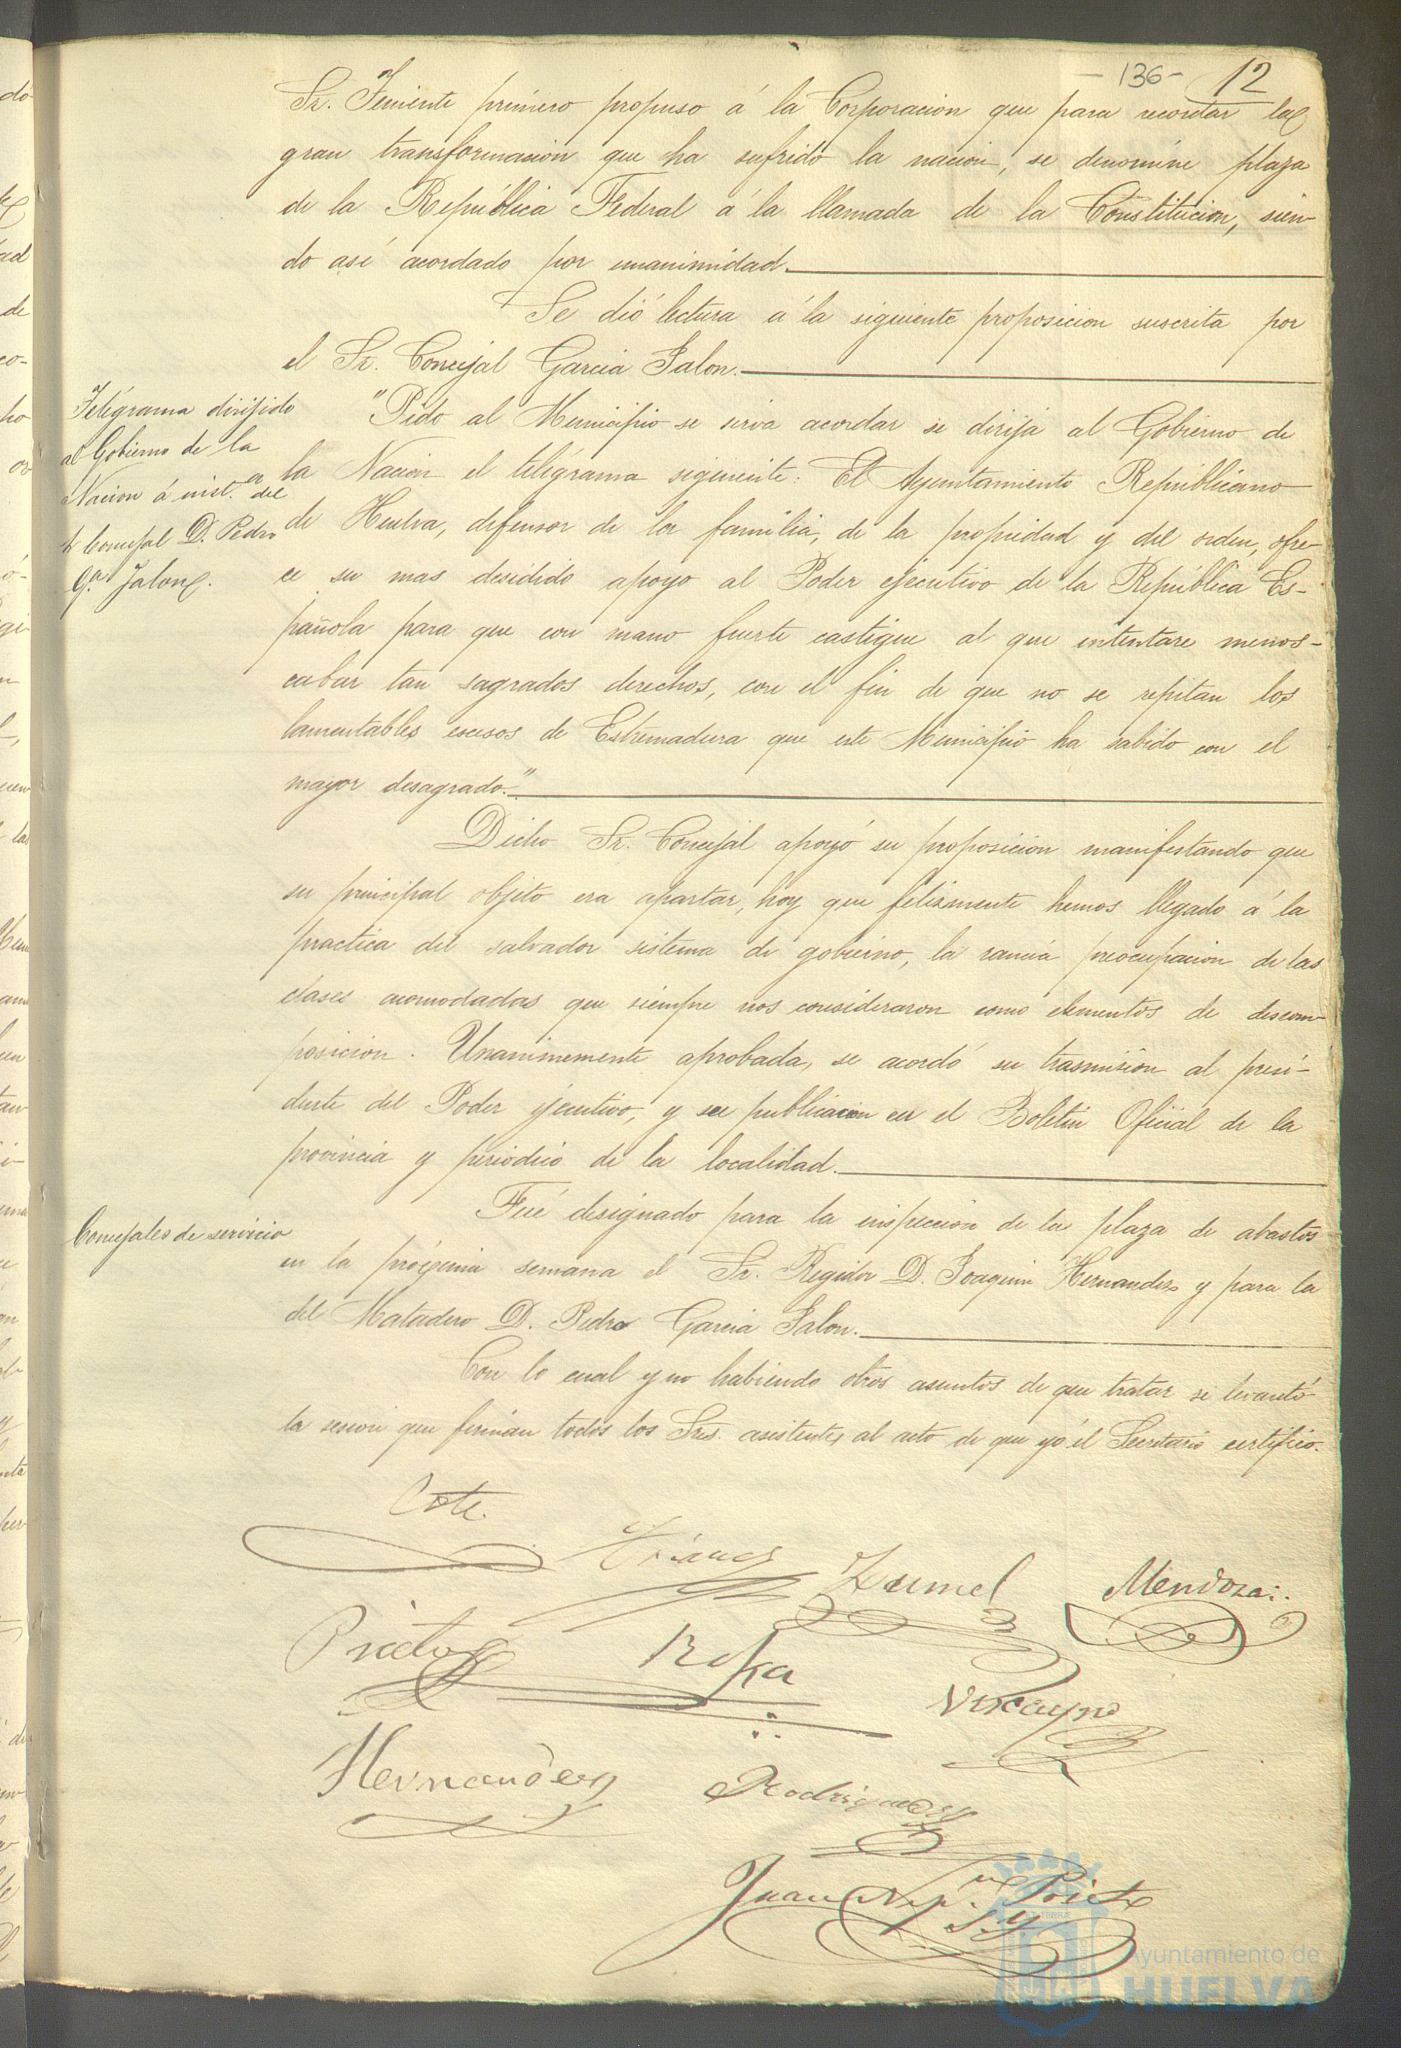 - 136 - 12
Sr. Teniente primero propuso á la Corporacion que para recordar la
gran transformacion que ha sufrido la nacion, se denomine plaza
de la República Federal á la llamada de la Constitucion, sien-
do así acordado por unanimidad.
Se dió lectura á la siguiente proposicion suscrita por
el Sr. Concejal Garcia Jalon.
Telégrama dirijido
al Gobierno de la
Nacion á inst.ª del
Sr Concejal D. Pedro
Gª Jalon.
"Pido al Municipio se sirva acordar se dirija al Gobierno de
la Nacion el telégrama siguiente: El Ayuntamiento Republicano
de Huelva, defensor de la familia, de la propiedad y del orden, ofre-
ce su mas desidido apoyo al Poder ejecutivo de la República Es-
pañola para que con mano fuerte castigue al que intentare menos-
cabar tan sagrados derechos, con el fin de que no se repitan los
lamentables escesos de Estremadura que este Municipio ha sabido con el
mayor desagrado."
Dicho Sr. Concejal apoyó su proposicion manifestando que
su principal objeto era apartar, hoy que felizmente hemos llegado á la
practica del salvador sistema de gobierno, la rancia preocupacion de las
clases acomodadas que siempre nos consideraron como elementos de descom-
posicion. Unanimemente aprobada, se acordó su trasmision al presi-
dente del Poder ejecutivo, y su publicacion en el Boletin Oficial de la
provincia y periodico de la localidad.
Concejales de servicio
Fué designado para la inspeccion de la plaza de abastos
en la prócsima semana el Sr. Regidor D. Joaquin Hernandez y para la
del Matadero D. Pedro Garcia Jalon.
Con lo cual y no habiendo otros asuntos de que tratar se levantó
la sesion que firman todos los Sres. asistentes al acto de que yo el Secretario certifico.
Cote
Zumel
Mendoza
Prieto
Vizcayno
Hernandez
Rodriguez
Juan Nep. Prieto
Ayuntamiento de
HUELVA